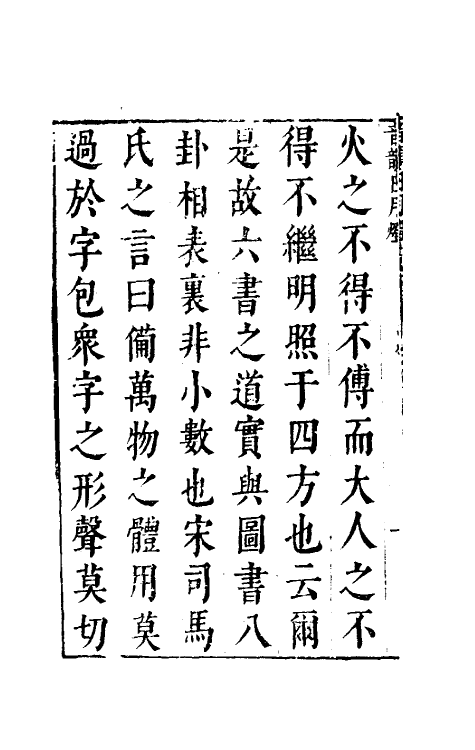 音韻日月燈
火之不得不傅而大人之不
得不繼明照于四方也云爾
是故六書之道實與圖書八
卦相表裏非小數也宋司馬
氏之言曰備萬物之體用莫
過於字包衆字之形聲莫切